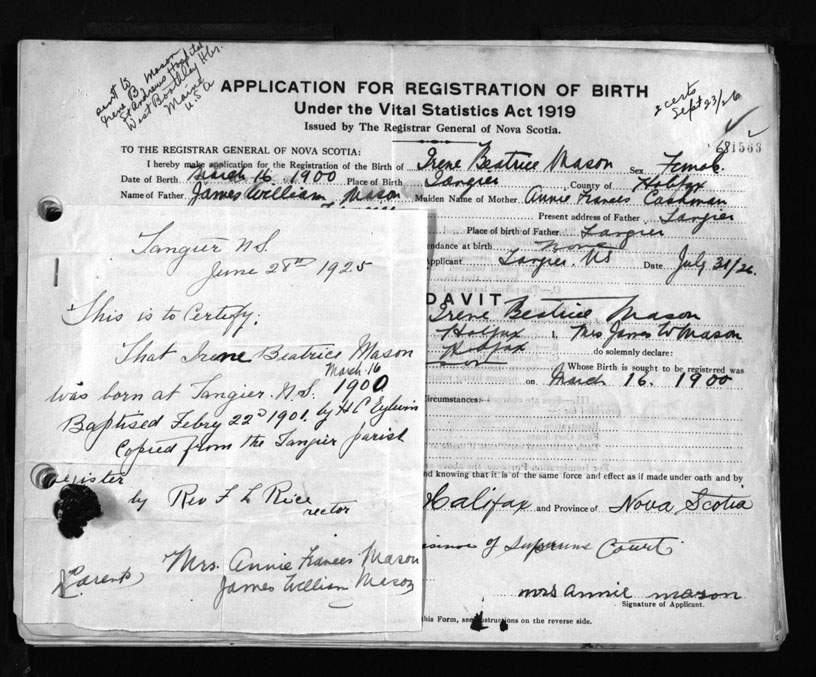 sent to
Irene B. Mason
St Andrews Hospital
West Boothbay Hbr.
Maine
U.S.A
APPLICATION FOR REGISTRATION OF BIRTH
Under the Vital Statistics Act 1919
Issued by The Registrar General of Nova Scotia.
2 certs
Sept 23/26
TO THE REGISTRAR GENERAL OF NOVA SCOTIA:
I hereby make application for the Registration of the Birth of Irene Beatrice Mason Sex Female
Date of Birth March 16 1900 Place of Birth Tangier County of Halifax
Name of Father James William Mason Maiden Name of Mother Annie Frances Cashman
Present address of Father Tangier
Place of birth of Father Tangier
endance at birth None
Applicant Tangier. NS Date July 31/26.
DAVIT
Irene Beatrice Mason
Halifax I, Mrs James W Mason
Halifax do solemnly declare:
Whose Birth is sought to be registered was
on March 16. 1900
Circumstances:
and knowing that it is of the same force and effect as if made under oath and by
Halifax and Province of Nova Scotia
of Supreme Court
Mrs Annie Mason
Signature of Applicant.
this Form, see instructions on the reverse side.
Tangier N.S.
June 28th 1925
This is to Certify.
That Irene Beatrice Mason
March 16
was born at Tangier. N.S. 1900
Baptised Febry 22d 1901. by H C
Copied from the Tangier parish
register
by Rev F L Rice
rector
Parents Mrs. Annie Frances Mason
James William Mason